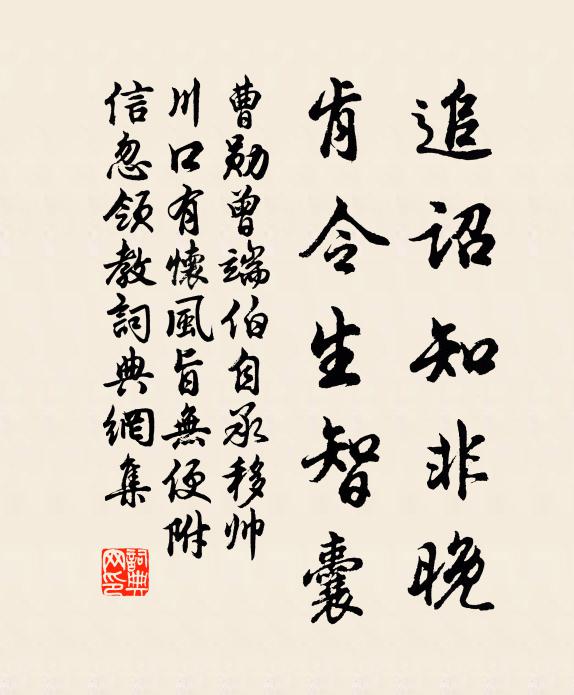 追诏知非晚
肯令生智囊
曹勋曾端伯自承移帅
川口有懷風旨無便附
信忽领教詞典網集
詞典网印